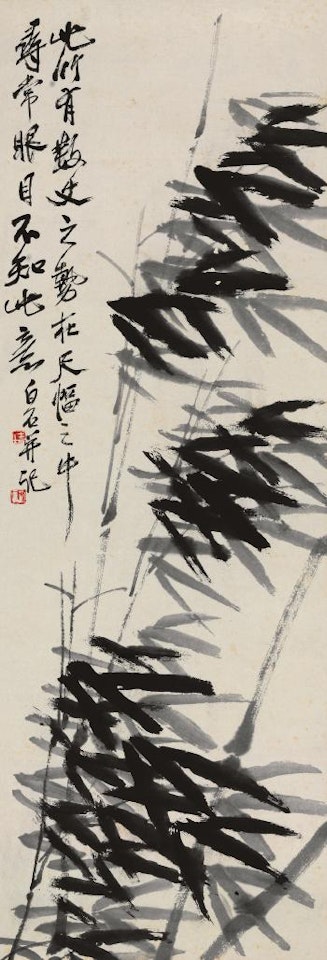 此竹有數丈之勢在尺幅之中
尋常眼目不知此意白石并記